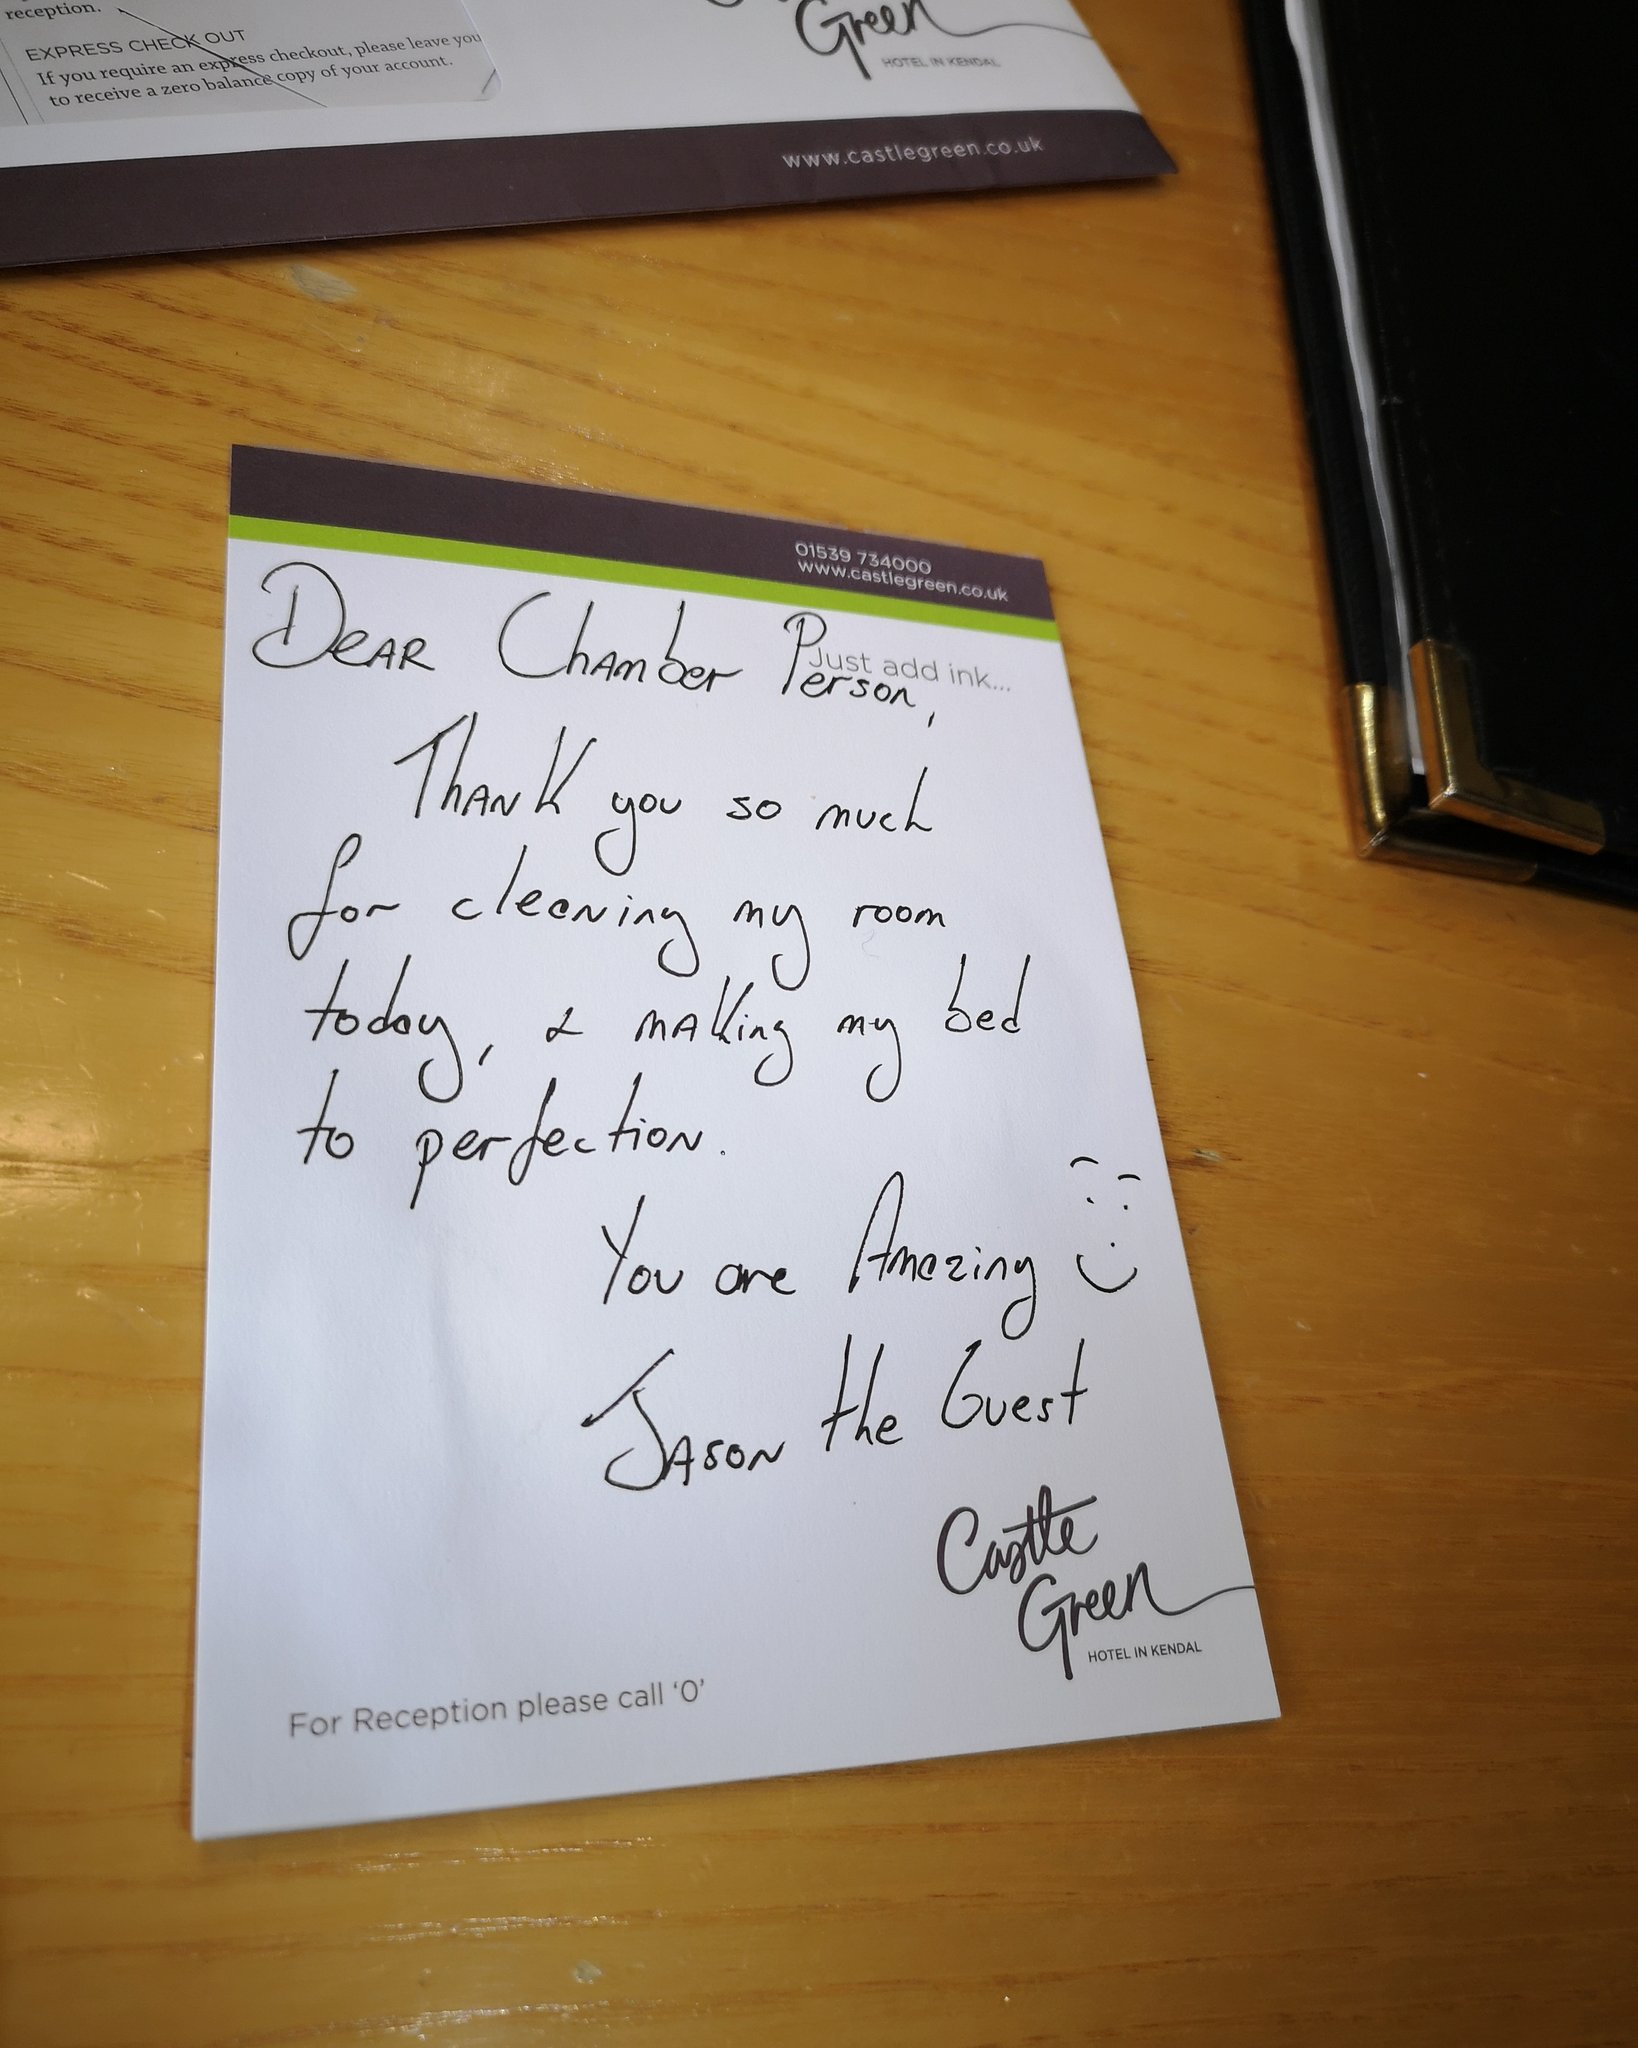 reception.
EXPRESS CHECK OUT
If you require an express checkout, please leave you
to receive a zero balance copy of your account.
Green
HOTEL IN KENDAL
www.castlegreen.co.uk
01539 734000
www.castlegreen.co.uk
Just add ink...
Dear Chamber Person,
Thank you so much
for cleaning my room
today, & making my bed
to perfection.
You are Amazing
Jason the Guest
Castle
Green
HOTEL IN KENDAL
For Reception please call '0'